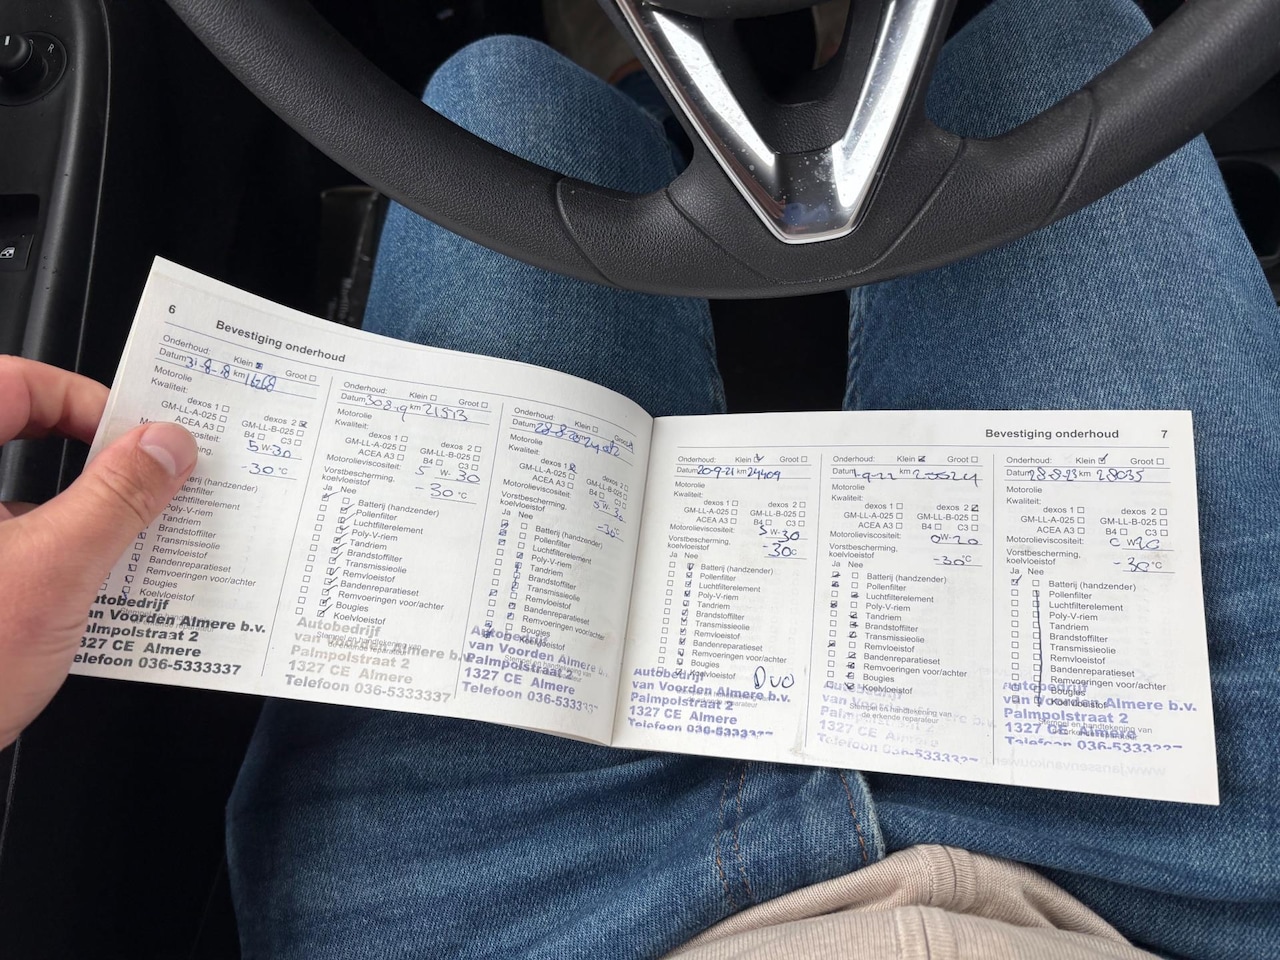 R
6
Bevestiging onderhoud
Onderhoud: Klein Groot
Datum 31-8-18 km 16268
Motorolie
Kwaliteit:
dexos 1 dexos 2
GM-LL-A-025 GM-LL-B-025
ACEA A3 B4 C3
5 W-30
-30 °C
Pollenfilter
Luchtfilterelement
Poly-V-riem
Tandriem
Brandstoffilter
Transmissieolie
Remvloeistof
Bandenreparatieset
Remvoeringen voor/achter
Bougies
Autobedrijf
van Voorden Almere b.v.
Palmpolstraat 2
1327 CE Almere
Telefoon 036-5333337
Onderhoud: Klein Groot
Datum 30 8 19 km 21513
Motorolie
Kwaliteit:
dexos 1 dexos 2
GM-LL-A-025 GM-LL-B-025
ACEA A3 B4 C3
Motorolieviscositeit: 5 W- 30
Vorstbescherming, koelvloeistof -30 °C
Ja Nee
Batterij (handzender)
Pollenfilter
Luchtfilterelement
Poly-V-riem
Tandriem
Brandstoffilter
Transmissieolie
Remvloeistof
Bandenreparatieset
Remvoeringen voor/achter
Bougies
Koelvloeistof
Autobedrijf
van Voorden Almere b.v.
Palmpolstraat 2
1327 CE Almere
Telefoon 036-5333337
Onderhoud: Klein Groot
Datum 28-8-20
Motorolie
Kwaliteit:
dexos 1 dexos 2
GM-LL-A-025 GM-LL-B-025
ACEA A3 B4 C3
Motorolieviscositeit: 5 W- 30
Vorstbescherming, koelvloeistof -30 °C
Ja Nee
Batterij (handzender)
Pollenfilter
Luchtfilterelement
Poly-V-riem
Tandriem
Brandstoffilter
Transmissieolie
Remvloeistof
Bandenreparatieset
Remvoeringen voor/achter
Bougies
Koelvloeistof
Autobedrijf
van Voorden Almere b.v.
Palmpolstraat 2
1327 CE Almere
Telefoon 036-5333337
Bevestiging onderhoud 7
Onderhoud: Klein Groot
Datum 20-9-21 km 24409
Motorolie
Kwaliteit:
dexos 1 dexos 2
GM-LL-A-025 GM-LL-B-025
ACEA A3 B4 C3
Motorolieviscositeit: 5 W-30
Vorstbescherming, koelvloeistof -30 °C
Ja Nee
Batterij (handzender)
Pollenfilter
Luchtfilterelement
Poly-V-riem
Tandriem
Brandstoffilter
Transmissieolie
Remvloeistof
Bandenreparatieset
Remvoeringen voor/achter
Bougies
Koelvloeistof
Autobedrijf
van Voorden Almere b.v.
Palmpolstraat 2
1327 CE Almere
Telefoon 036-5333337
Onderhoud: Klein Groot
Datum km
Motorolie
Kwaliteit:
dexos 1 dexos 2
GM-LL-A-025 GM-LL-B-025
ACEA A3 B4 C3
Motorolieviscositeit: 0 W-20
Vorstbescherming, koelvloeistof -30 °C
Ja Nee
Batterij (handzender)
Pollenfilter
Luchtfilterelement
Poly-V-riem
Tandriem
Brandstoffilter
Transmissieolie
Remvloeistof
Bandenreparatieset
Remvoeringen voor/achter
Bougies
Koelvloeistof
Stempel en handtekening van
de erkende reparateur
Autobedrijf
van Voorden Almere b.v.
Palmpolstraat 2
1327 CE Almere
Telefoon 036-5333337
Onderhoud: Klein Groot
Datum 28-8-23 km 28035
Motorolie
Kwaliteit:
dexos 1 dexos 2
GM-LL-A-025 GM-LL-B-025
ACEA A3 B4 C3
Motorolieviscositeit: 0 W-20
Vorstbescherming, koelvloeistof -30 °C
Ja Nee
Batterij (handzender)
Pollenfilter
Luchtfilterelement
Poly-V-riem
Tandriem
Brandstoffilter
Transmissieolie
Remvloeistof
Bandenreparatieset
Remvoeringen voor/achter
Bougies
Koelvloeistof
Stempel en handtekening van
Autobedrijf
van Voorden Almere b.v.
Palmpolstraat 2
1327 CE Almere
Telefoon 036-5333337